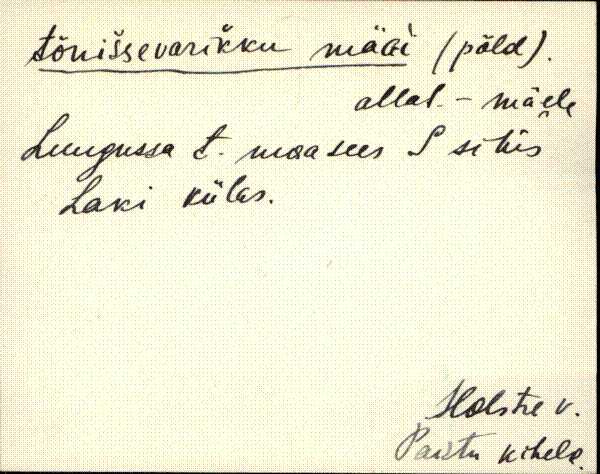 tõnìšševarikku mäGi (põld).
allat. – mäele
Luugussa t. maa sees S sihis
Laki külas.
Holstre v.
Paistu kihelk.